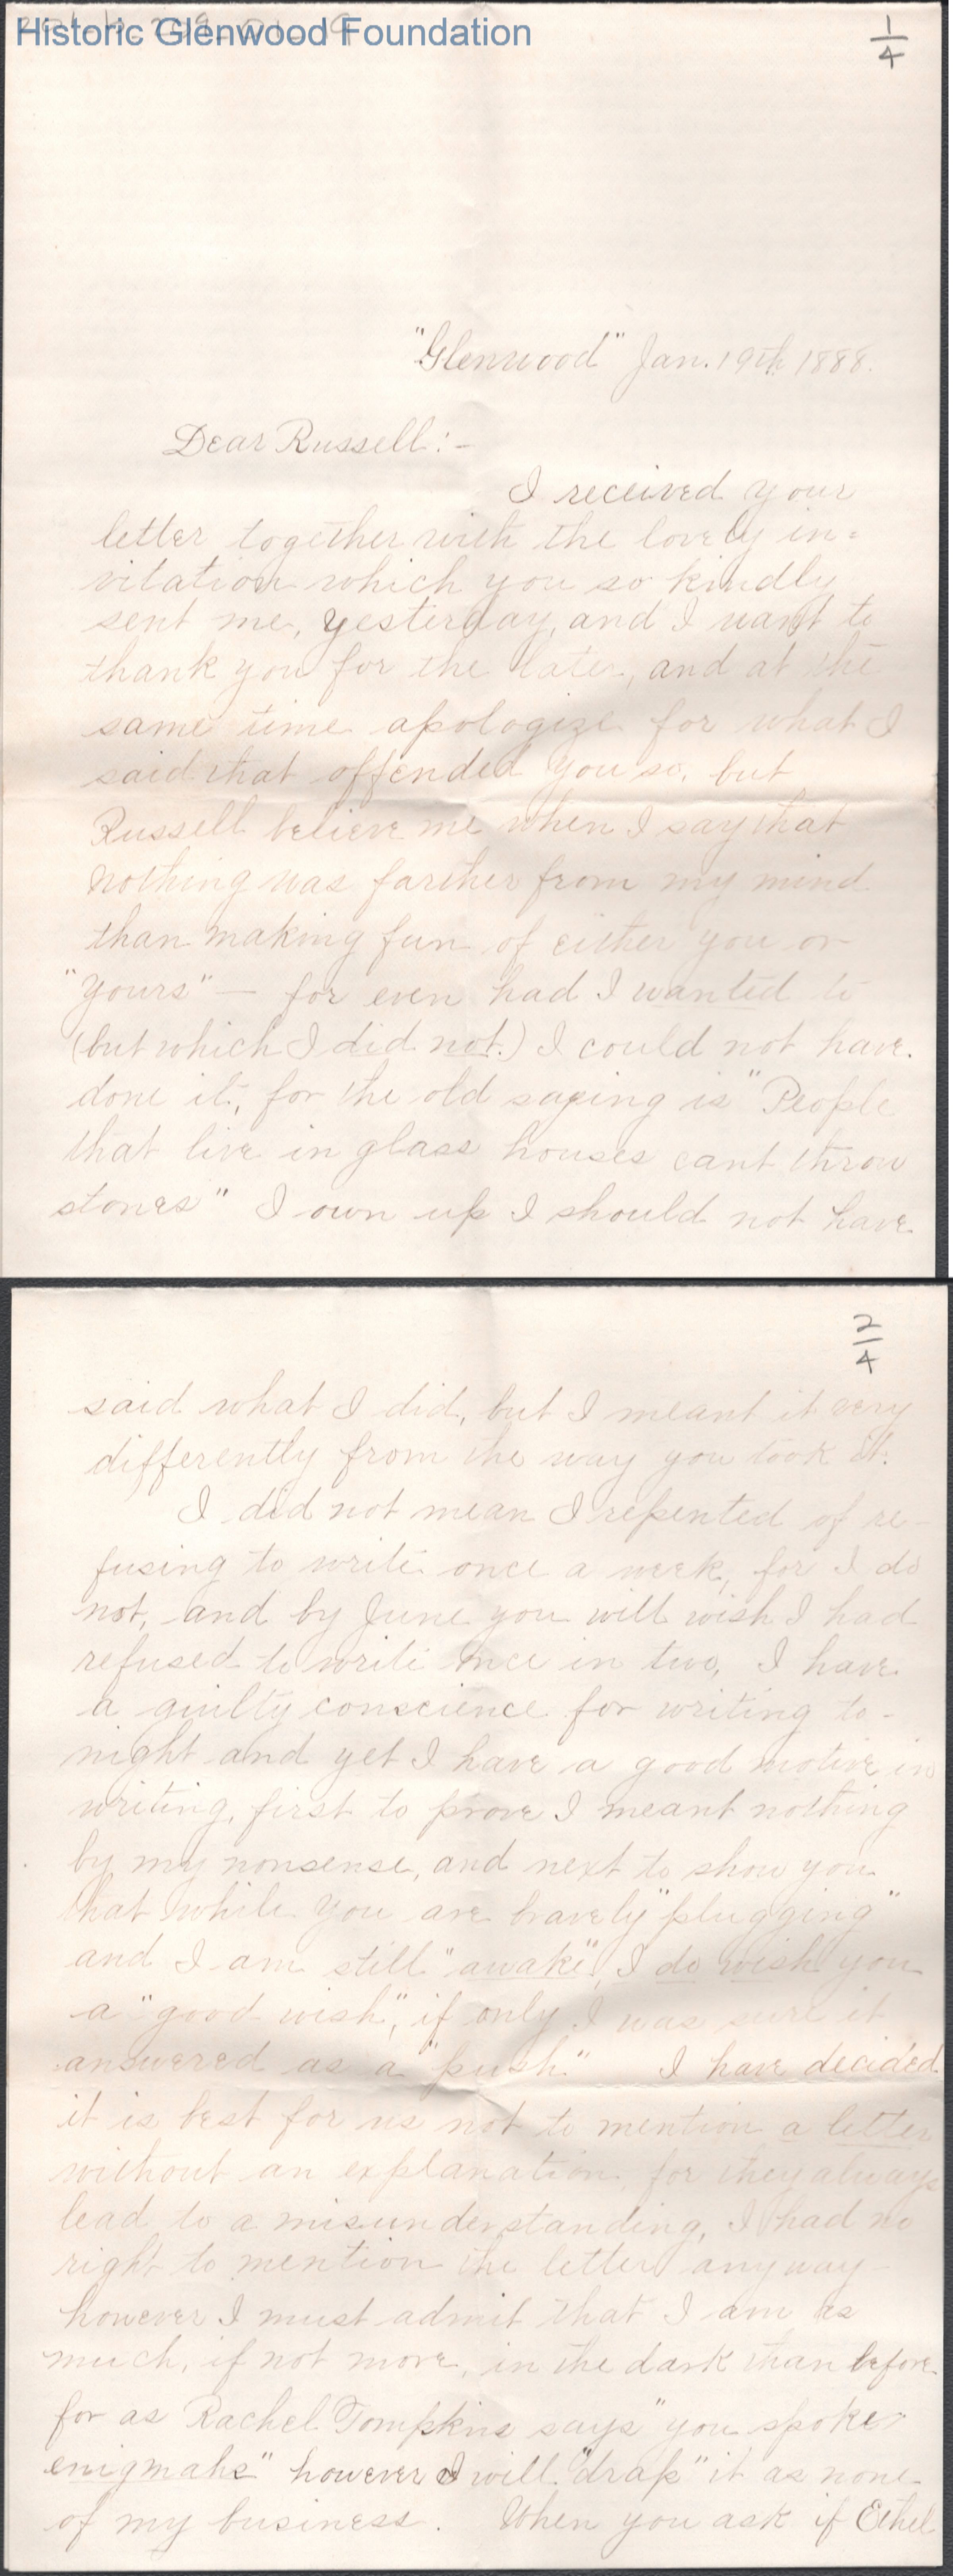 Historic Glenwood Foundation
1/4
"Glenwood" Jan. 19th 1888.
Dear Russell:-
I received your
letter together with the lovely in=
vitation which you so kindly
sent me, yesterday, and I want to
thank you for the later, and at the
same time apologize for what I
said that offended you so, but
Russell believe me when I say that
nothing was farther from my mind
than making fun of either you or
"yours" — for even had I wanted to
(but which I did not.) I could not have
done it, for the old saying is "People
that live in glass houses cant throw
stones" I own up I should not have
2/4
said what I did, but I meant it very
differently from the way you took it.
I did not mean I repented of re-
fusing to write once a week, for I do
not, and by June you will wish I had
refused to write once in two, I have
a guilty conscience for writing to-
night and yet I have a good motive in
writing, first to prove I meant nothing
by my nonsense, and next to show you
that while you are bravely "plugging"
and I am still "awake", I do wish you
a "good wish", if only I was sure it
answered as a "push." I have decided
it is best for us not to mention a letter
without an explanation, for they always
lead to a misunderstanding, I had no
right to mention the letter anyway -
however I must admit that I am as
much, if not more, in the dark than before
for as Rachel Tompkins says "you spoke
enigmahs" however I will "drap" it as none
of my business. When you ask if Ethel